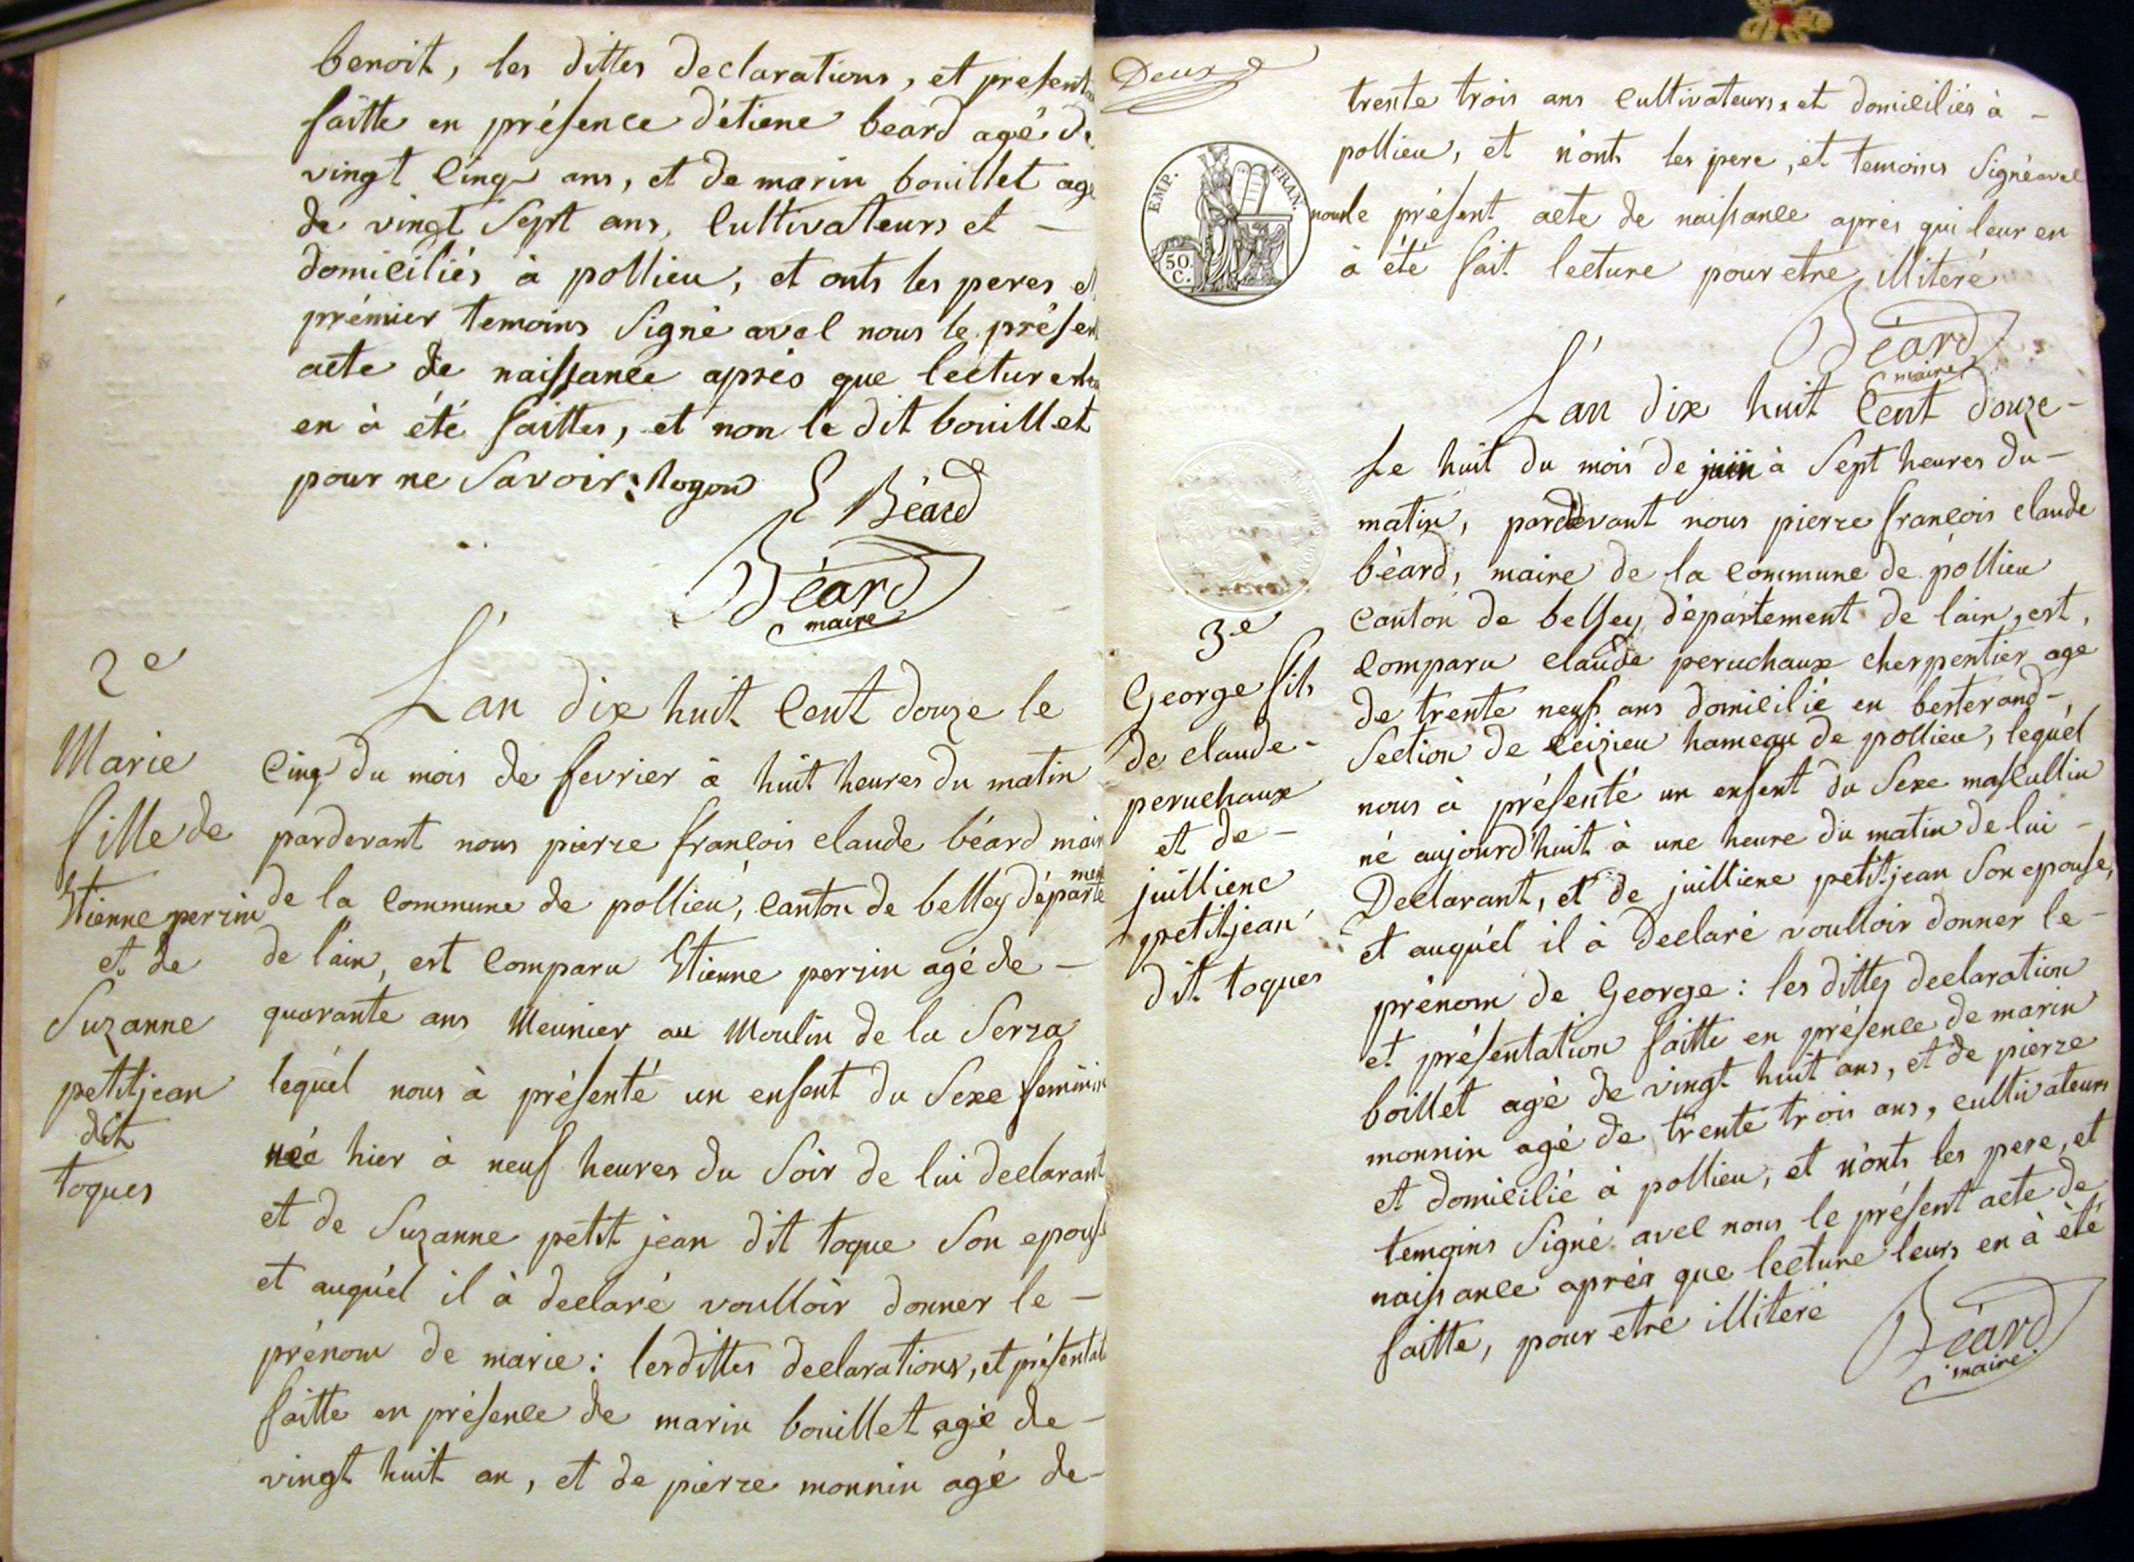 benoit, les dittes declarations, et present
faitte en présence d'étiene beard agé de
vingt cinq ans, et de marin bouillet agé
de vingt sept ans, cultivateurs et -
domiciliés à pollieu, et onts les peres et
prémier temoins signé avec nous le présent
acte de naissance après que lecture
en à été faittes, et non le dit bouillet
pour ne savoir:
E Béard
Béard
maire
2e
Marie
fille de
Etienne perrin
et de
Suzanne
petitjean
dit
toques
L'an dix huit cent douze le
cinq du mois de fevrier à huit heures du matin
pardevant nous pierre françois claude béard mair
de la commune de pollieu, canton de belley départe
ment
de l'ain, est comparu Etienne perrin agé de -
quarante ans Meunier au Moulin de la Serra
lequél nous à présenté un enfent du sexe feminin
née hier à neuf heures du soir de lui declarant
et de Suzanne petit jean dit toque son epouse
et auquél il à declaré voulloir donner le -
prénom de marie: lesdittes declarations, et présentat
faitte en présence de marin bouillet agé de -
vingt huit an, et de pierre monnin agé de -
Deux
EMP. FRAN.
50 C.
trente trois ans cultivateurs, et domiciliés à -
pollieu, et n'onts les pere, et temoins signé avec
nous le présent acte de naissance après qui leur en
à été fait lecture pour etre illiteré
Béard
maire
3.e
George fils
de claude -
peruchaux
et de -
juilliene
petitjean
dit toques
L'an dix huit cent douze -
Le huit du mois de juin à sept heures du -
matin, pardevant nous pierre françois claude
béard, maire de la commune de pollieu
canton de belley département de lain, est,
comparu claude peruchaux cherpentier age
de trente neuf ans domicilié en besterand -
Section de ceizieu hameau de pollieu, lequél
nous à présenté un enfent du sexe mascullin
né aujourd'huit à une heure du matin de lui -
Declarant, et de juilliene petitjean son epouse,
et auquél il à declaré voulloir donner le -
prénom de George: les dittes declaration
et présentation faitte en présence de marin
boillet agé de vingt huit ans, et de pierre
monnin agé de trente trois ans, cultivateurs
et domicilié à pollieu, et n'onts les pere, et
temoins signé avec nous le présent acte de
naissance après que lecture leurs en à été
faitte, pour etre illiteré
Béard
maire